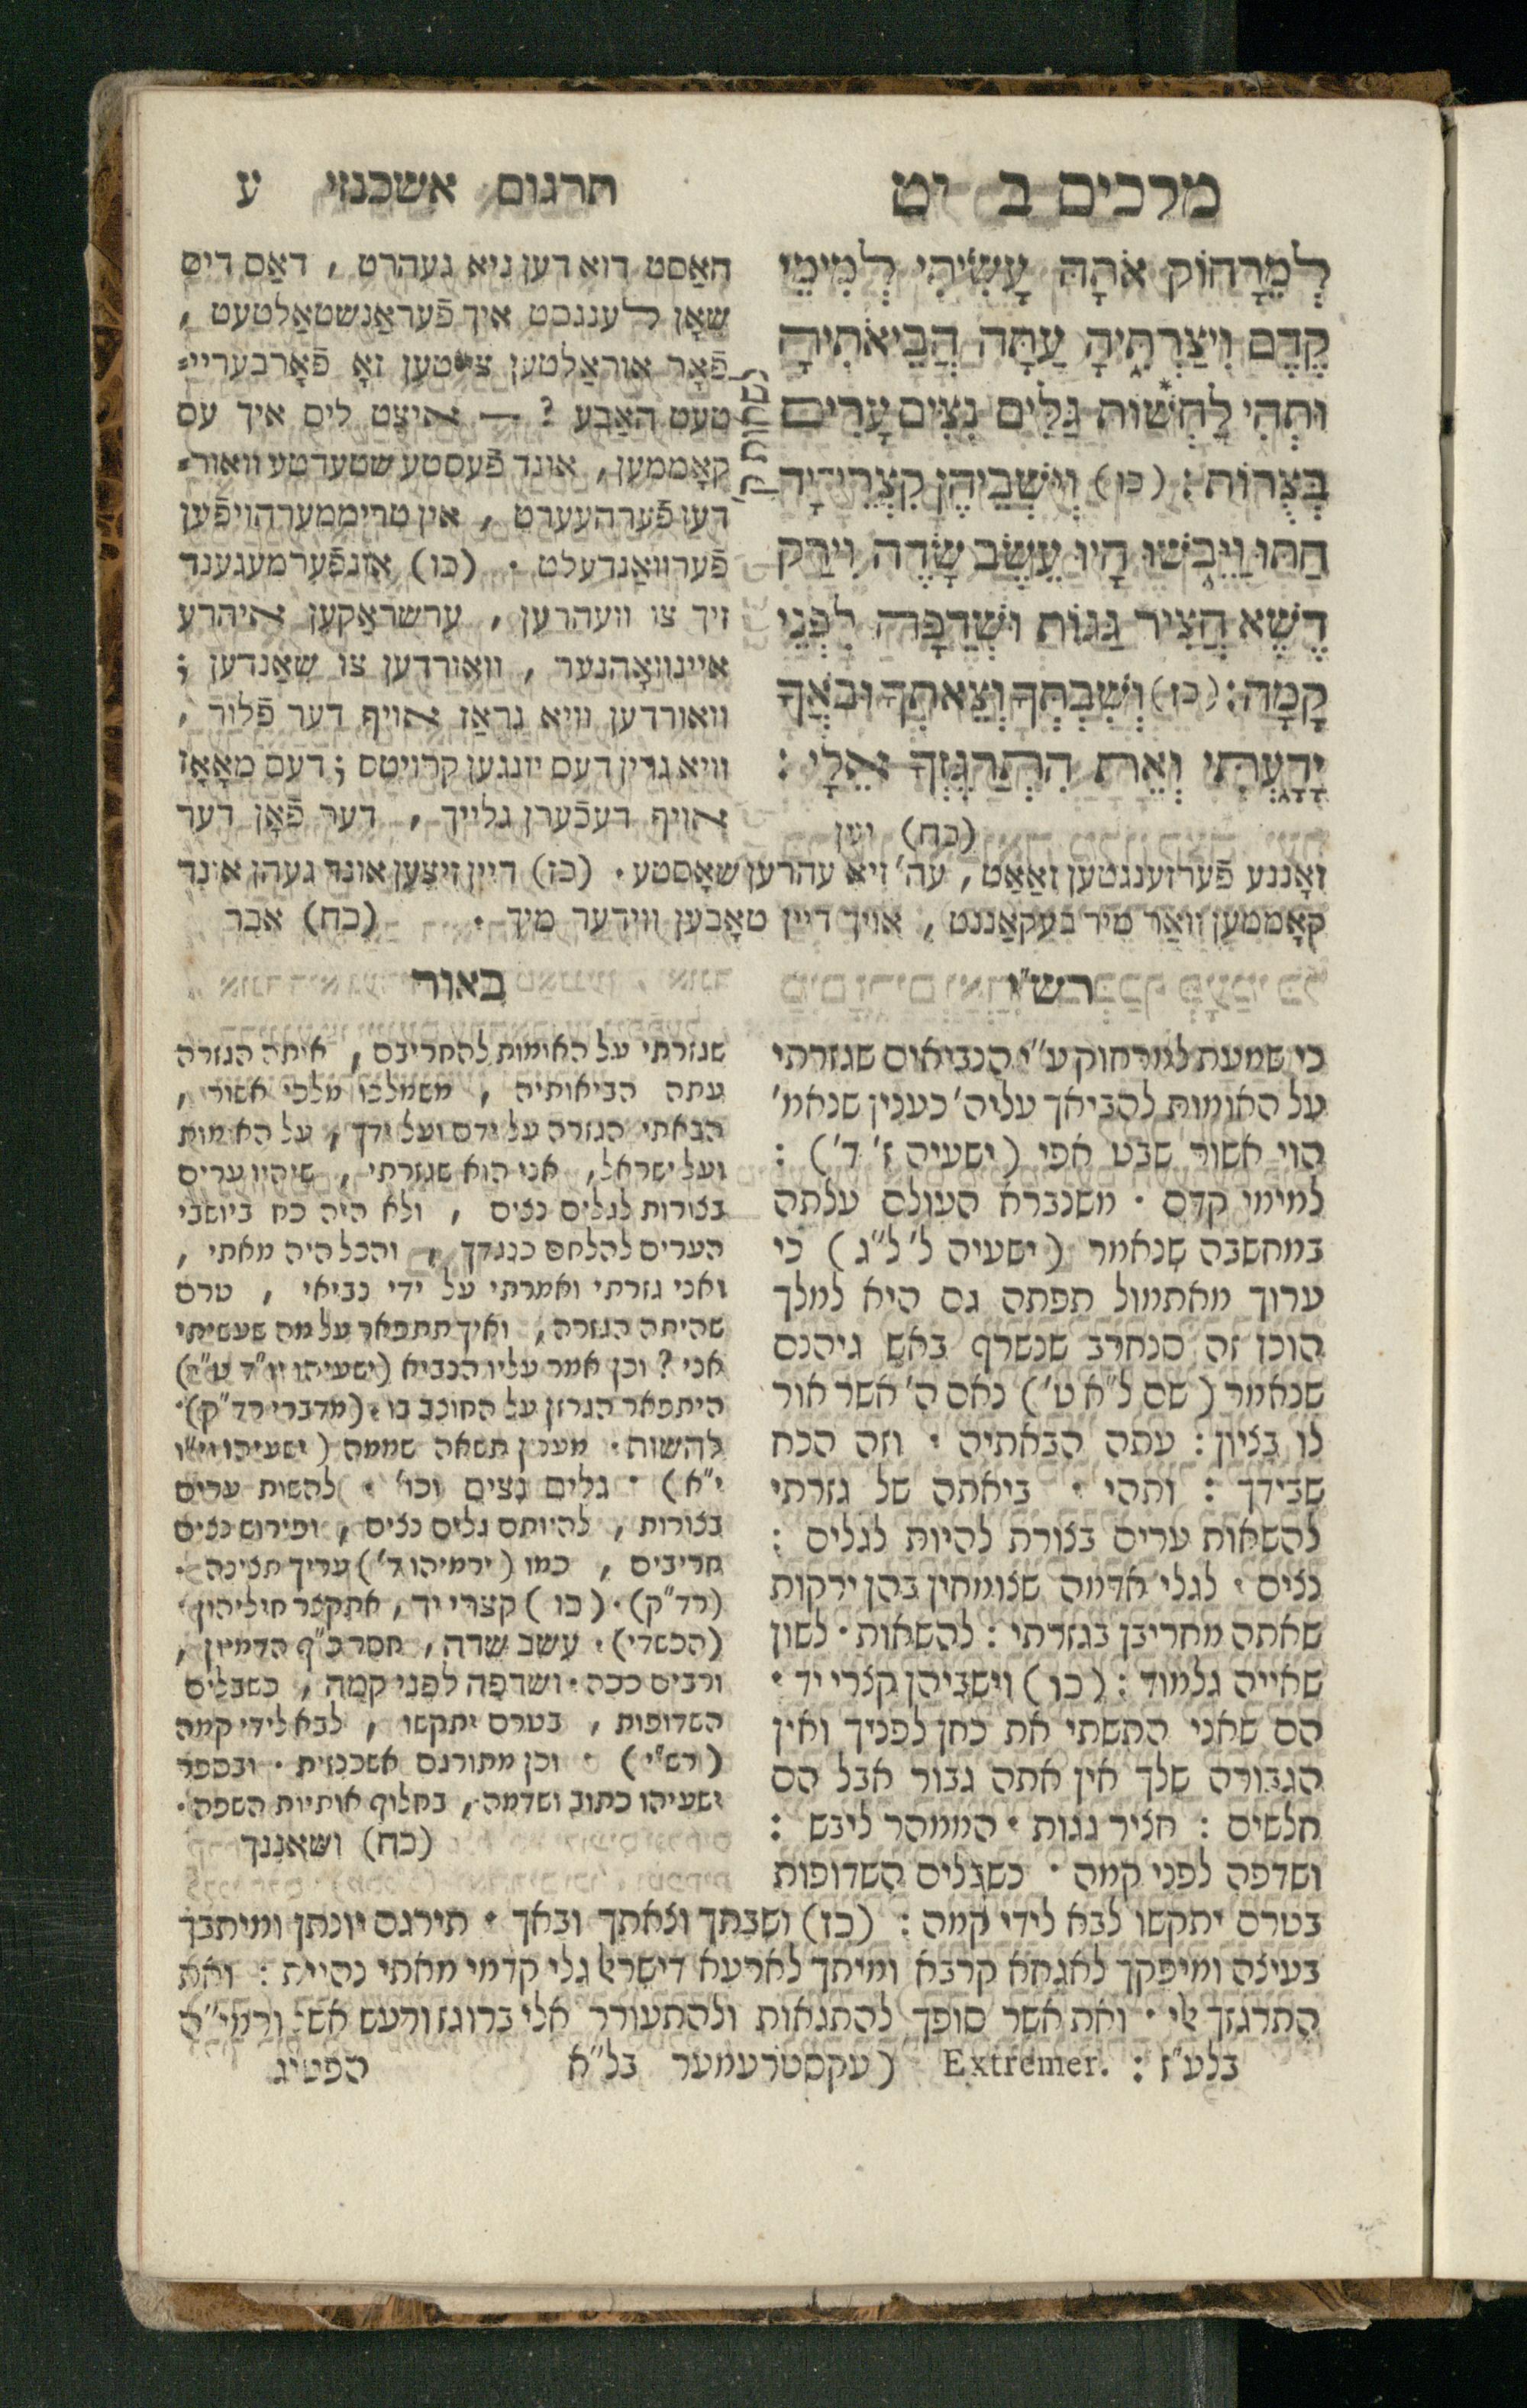 מלכים ב יט
לְמֵרָחוֹק אֹתָהּ עָשִׂיתִי לְמִימֵי
קֶדֶם וִיצַרְתִּיהָ עַתָּה הֲבֵיאֹתִיהָ
וּתְהִי לַהְשׁוֹת גַּלִּים נִצִּים עָרִים
בְּצֻרוֹת׃ (כו) וְיֹשְׁבֵיהֶן קִצְרֵי־יָד
חַתּוּ וַיֵּבֹשׁוּ הָיוּ עֵשֶׂב שָׂדֶה וִירַק
דֶּשֶׁא חֲצִיר גַּגּוֹת וּשְׁדֵפָה לִפְנֵי
קָמָה׃ (כז) וְשִׁבְתְּךָ וְצֵאתְךָ וּבֹאֲךָ
יָדָעְתִּי וְאֵת הִתְרַגֶּזְךָ אֵלָי׃
(כח) יען
תרגום אשכנזי ע
האַסט דוא דען ניא געהרט, דאַס דיס
שאָן לענגסט איך פֿעראַנשטאַלטעט,
פֿאָר אוראַלטען צייטען זאָ פֿאָרבעריי=
טעט האַבע? — איצט ליס איך עס
קאָממען, אונד פֿעסטע שטעדטע וואור=
דען פֿערהעערט, אין טריממערהויפֿען
פֿערוואַנדעלט. (כו) אונפֿערמעגענד
זיך צו וועהרען, ערשראַקען איהרע
איינוואָהנער, וואורדען צו שאַנדען;
וואורדען וויא גראַז אויף דער פֿלור,
וויא גרין דעס יונגען קרויטס; דעם מאָאָז
אויף דעכֿערן גלייך, דער פֿאָן דער
זאָננע פֿערזענגטען זאַאַט, עה' זיא עהרען שאָסטע. (כז) דיין זיצען אונד געהן אונד
קאָממען וואַר מיר בעקאַננט, אויך דיין טאָבען ווידער מיך. (כח) אבר
רש"י
כי שמעת למרחוק ע"י הנביאים שגזרתי
על האומות להביאך עליה' כענין שנאמ'
הוי אשור שבט אפי (ישעיה ז' ד'):
למימי קדם. משנברא העולם עלתה
במחשבה שנאמר (ישעיה ל' ל"ג) כי
ערוך מאתמול תפתה גם היא למלך
הוכן זה סנחרב שנשרף באש גיהנם
שנאמר (שם ל"א ט') נאם ה' אשר אור
לו בציון: עתה הבאתיה. וזה הכח
שבידך: ותהי. ביאתה של גזרתי
להשאות ערים בצורת להיות לגלים:
נצים. לגלי אדמה שצומחין בהן ירקות
שאתה מחריבן בגזרתי: להשאות. לשון
שאייה גלמוד: (כו) וישביהן קצרי יד.
הם שאני התשתי את כחן לפניך ואין
הגבורה שלך אין אתה גבור אבל הם
חלשים: חציר גגות. הממהר ליבש:
ושדפה לפני קמה. כשבלים השדופות
בטרם יתקשו לבא לידי קמה: (כז) ושבתך וצאתך ובאך. תירגם יונתן ומיתבך
בעיצה ומיפקך לאגחא קרבא ומיתך לארעא דישראל גלי קדמי מאתי נהיית: ואת
התרגזך אלי. ואת אשר סופך להתגאות ולהתעורר אלי ברוגז ורעש אש' ורמי"ה
בלע"ז: Extremer. (עקסטרעמער בל"א הפטיג
באור
שגזרתי על האומות להחריבם, איתה הגזרה
עתה הביאותיה, משמלכו מלכי אשור,
הבאתי הגזרה על ידם ועל ידך, על האומות
ועל ישראל, אני הוא שגזרתי, שיהיו ערים
בצורות לגלים נצים, ולא היה כח ביושבי
הערים להלחם כנגדך, והכל היה מאתי,
ואני גזרתי ואמרתי על ידי נביאי, טרם
שהיתה הגזרה, ואיך תתפאר על מה שעשיתי
אני? וכן אמר עליו הנביא
היתפאר הגרזן על החוצב בו. (מדברי רד"ק).
להשות. מענין תשאה שממה (ישעיהו
י"א). גלים נצים וכו'. להשות ערים
בצורות, להיותם גלים נצים, ופירוש נצים
חריבים, כמו (ירמיהו ד') עריך תצינה.
(רד"ק). (כו) קצרי יד, אתקצר חיליהון
(הכשדי). עשב שדה, חסר כ"ף הדמיון,
ורבים ככה. ושדפה לפני קמה, כשבלים
השדופות, בטרם יתקשו, לבא לידי קמה
(רש"י). וכן מתורגם אשכנזית. ובספר
ישעיהו כתוב ושדמה, בחלוף אותיות השפה.
(כח) ושאננך